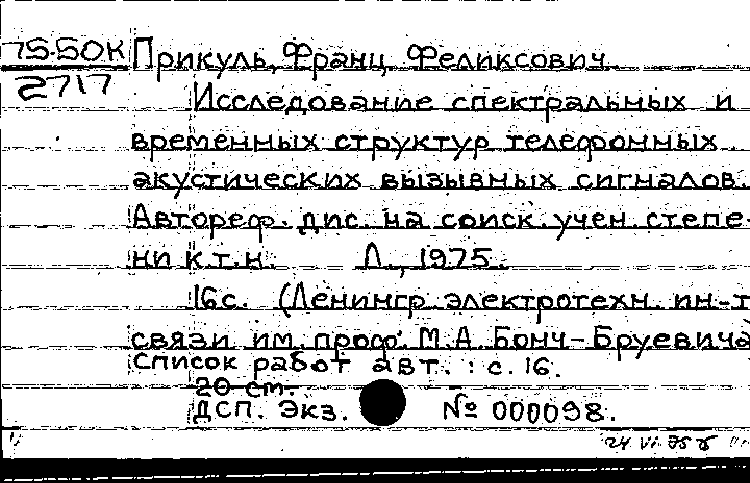 75-50К Прикуль, Франц Феликсович
2717
Исследование спектральных и
временных структур телефонных
акустических вызывных сигналов.
Автореф. дис. на соиск. учен. степе-
ни к.т.н. Л., 1975.
16с. (Ленингр. электротехн. ин-т
связи им. проф. М.А. Бонч-Бруевича
Список работ авт.: с. 16.
20 см.
ДСП. Экз. № 000098.
24 VI 75